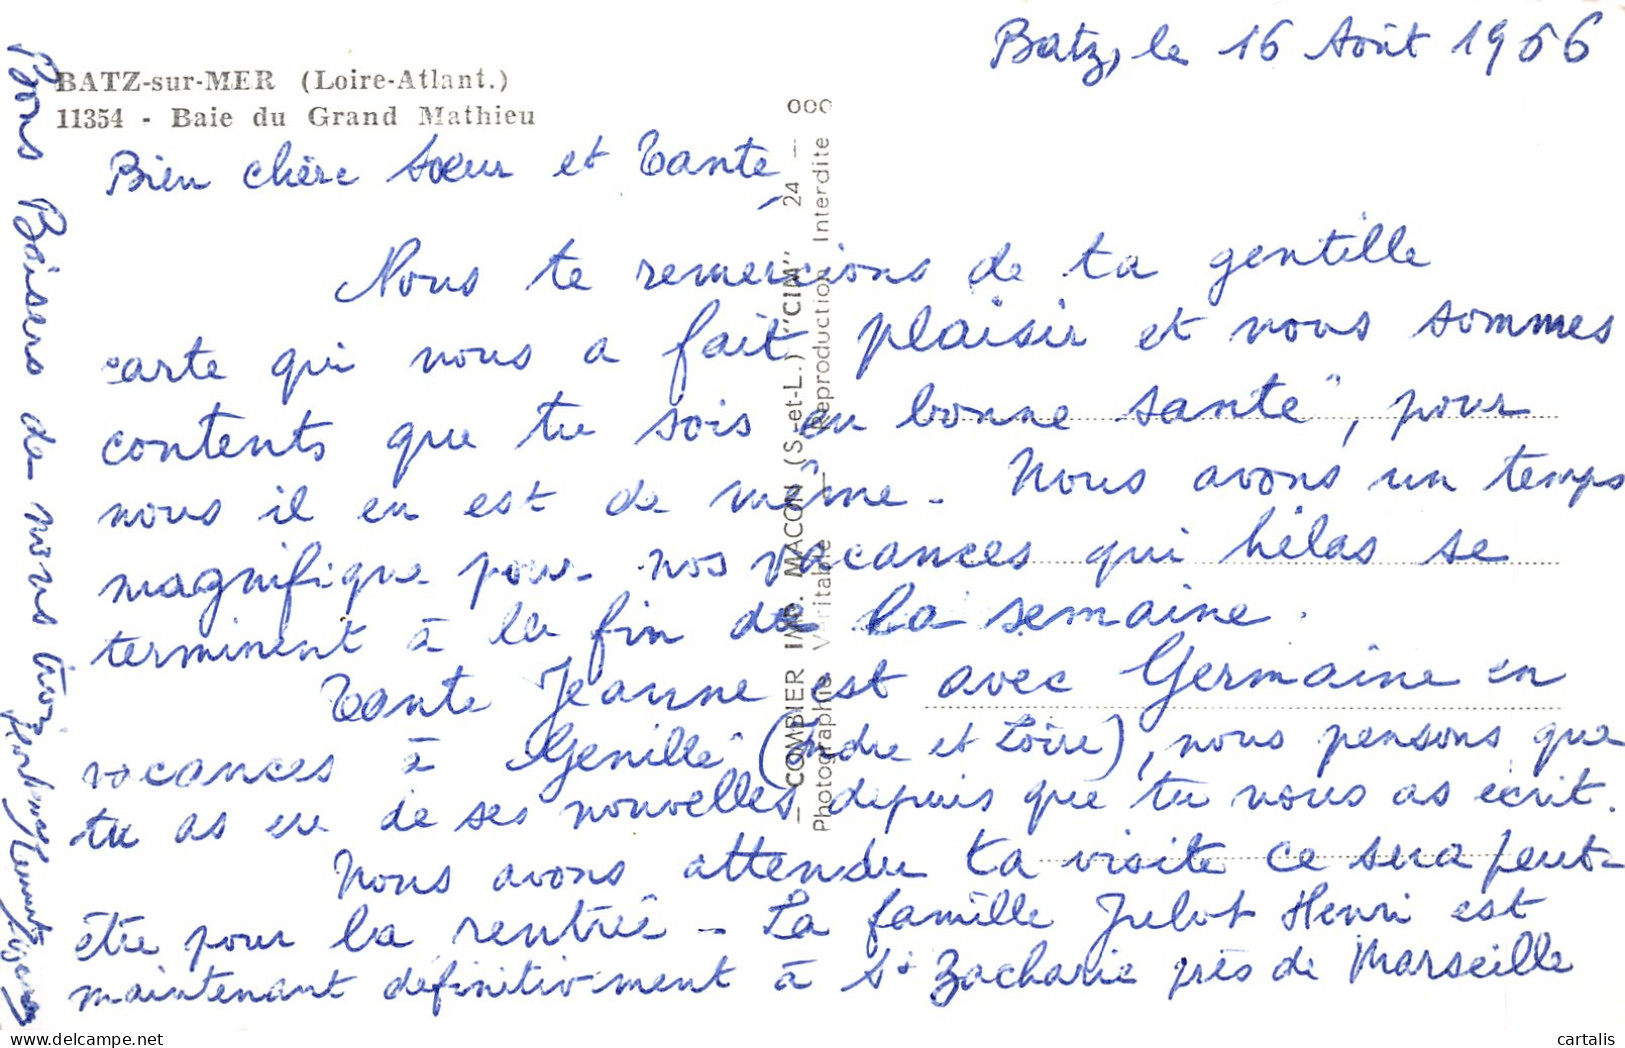 Batz, le 16 Août 1966
BATZ-sur-MER (Loire-Atlant.)
11354 - Baie du Grand Mathieu
Bien chère Sœur et Tante,
Nous te remercions de ta gentille
carte qui nous a fait plaisir et nous sommes
contents que tu sois en bonne santé, pour
nous il en est de même. Nous avons un temps
magnifique pour nos vacances qui hélas se
terminent à la fin de la semaine.
Tante Jeanne est avec Germaine en
vacances à Genillé (Indre et Loire), nous pensons que
tu as eu de ses nouvelles depuis que tu nous as écrit.
Nous avons attendu ta visite ce sera peut-
être pour la rentrée - La famille Julot Henri est
maintenant définitivement à St Zacharie près de Marseille
Bons Baisers de nous trois
COMBIER IMP. MACON (S.-et-L.) "CIM" 24 -
Photographie Véritable - Reproduction Interdite
000
www.delcampe.net
cartalis